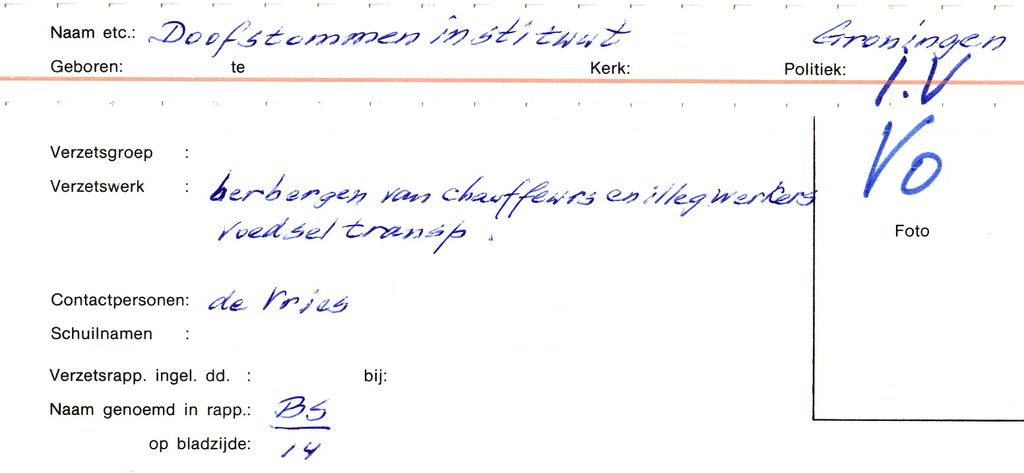 Naam etc.: Doofstommen instituut Groningen
Geboren: te Kerk: Politiek: I.V
Vo
Verzetsgroep :
Verzetswerk : herbergen van chauffeurs en illeg werkers
voedsel transp.
Foto
Contactpersonen: de Vries
Schuilnamen :
Verzetsrapp. ingel. dd. : bij:
Naam genoemd in rapp.: BS
op bladzijde: 14